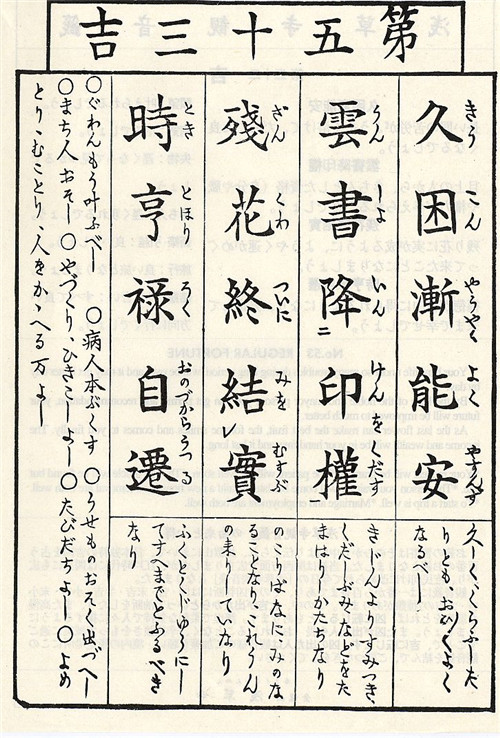 第五十三吉
きうこんやうやくよくやすんず
久困漸能安
久しくくらふた
りともおひ〳〵よく
なるべし
うんしよいんけんをくだす
雲書降ニ印權
よりすみつき、
くだしぶみなどをた
まはりしかたちなり
ざんくわついにみをむすぶ
殘花終結レ實
のこりばなにみのな
るこ なり、これうん
の来りしていなり
ときとほりろくおのづからうつる
時亨禄自遷
にし
てすへまでとぐるべき
なり
〇ぐわんもう叶ふべし 〇病人本ぶくす 〇うせものおそく出づべし
〇まち人おそし〇やづくりひきこしよし〇たびだちよし〇よめ
とりむことり、人をかゝへる万よし